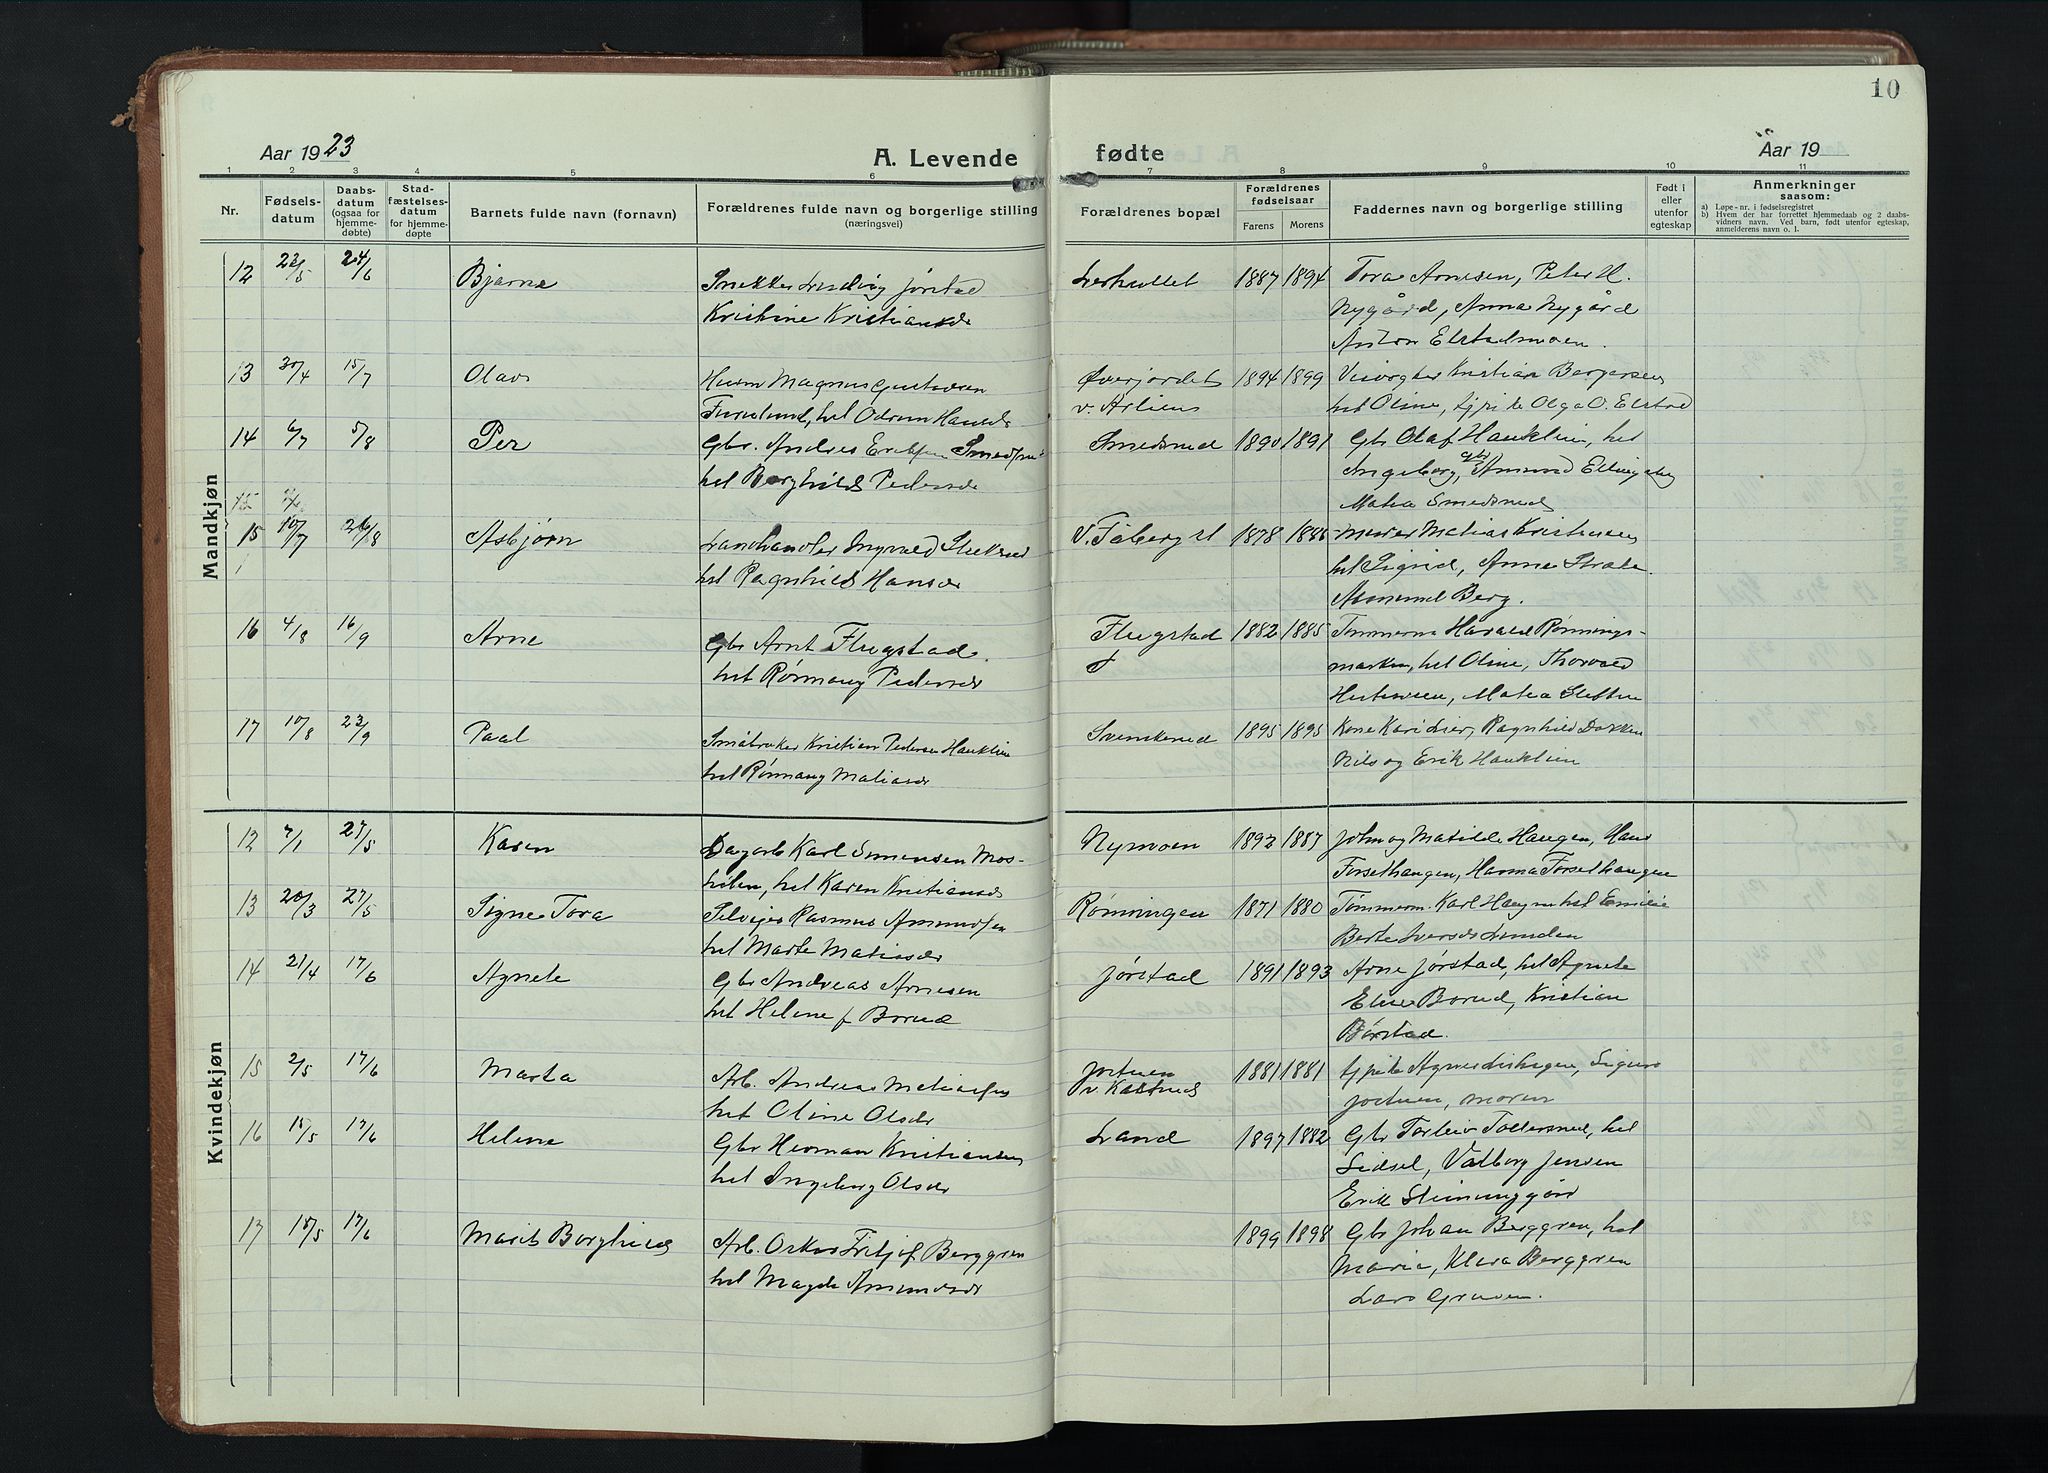 10
Aar 1923
A. Levende fødte
Aar 19
1 2 3 4 5 6 7 8 9 10 11
Nr.
Fødsels-
datum
Daabs-
datum
(ogsaa for
hjemme-
døbte)
Stad-
fæstelses-
datum
for hjemme-
døpte
Barnets fulde navn (fornavn)
Forældrenes fulde navn og borgerlige stilling
(næringsvei)
Forældrenes bopæl
Forældrenes
fødselsaar
Farens Morens
Faddernes navn og borgerlige stilling
Født i
eller
utenfor
egteskap
Anmerkninger
saasom:
a) Løpe-nr. i fødselsregistret
b) Hvem der har forrettet hjemmedaab og 2 daabs-
vidners navn. Ved barn, født utenfor egteskap,
anmelderens navn o. l.
Mandkjøn
12 23/5 24/6 Bjarne Snekker Ludvig Jørstad 1887 1894 Tora Arnesen, Peter H.
Kristine Kristiansdr Nygård, Anna Nygård
Anton Elstadmoen.
13 30/4 15/7 Olav Magnus Gustavsen Øverjordet 1894 1899 Kristian Bergersen
Furulund, hst Hansdr v. Arliens hst Oline, Olga O. Elstad
14 6/7 5/8 Per Gbr. Andreas Smedsrud 1890 1891 Gbr Olaf Hauklien, hst
hst Borghild Pedersdr Ingeborg, gbr Amund
Smedsrud
15
15 10/7 26/8 Asbjørn Landhandler Ingvald V. Fåberg st 1878 Murer Matias Kristiansen
hst Ragnhild Hansdr hst Sigrid, Anne
Berg.
16 4/8 16/9 Arne Gbr Arnt Flugstad Flugstad 1882 1885 Harald Rønnings-
hst Rønnaug Pedersdr marken, hst Oline, Thorvald
Matea Sletten
17 10/8 23/9 Paal Småbruker Kristian Pedersen Hauklien Svenskerud 1895 1895 Kone Kari Lier, Ragnhild Dokken
hst Rønnaug Matiasdr Nils og Erik Hauklien
Kvindekjøn
12 7/1 27/5 Karen Dagarb Karl Simensen Mos- Nymoen 1892 1887 John og Matilde Haugen, Hans
hst Karen Kristiansdr Forsethaugen, Hanna Forsethaugen
13 20/3 27/5 Signe Tora Selveier Rasmus Amundsen Rønningen 1871 1880 Tømmerm. Karl Haugen hst Emilie
hst Marte Matiasdr Berte Iversdr Lunden
14 21/4 17/6 Agnete Gbr Andreas Arnesen Jørstad 1891 1893 Arne Jørstad, hst Agnete
hst Helene f Borud Borud, Kristian
Jørstad.
15 2/5 17/6 Marta Arb. Andreas Matiassen 1881 1881
hst Oline Olsdr moren
16 15/5 17/6 Helene Gbr Herman Kristiansen Land 1897 1882 Gbr Torleiv Tollersrud, hst
hst Ingeborg Olsdr Sidsel, Valborg Jensen
Erik
17 18/5 17/6 Marit Borghild Arb. Oskar Fritjof Berggren 1899 1898 Gbr Johan Berggren, hst
hst Magda Amundsdr Maria, Klara Berggren
Lars Gruven.